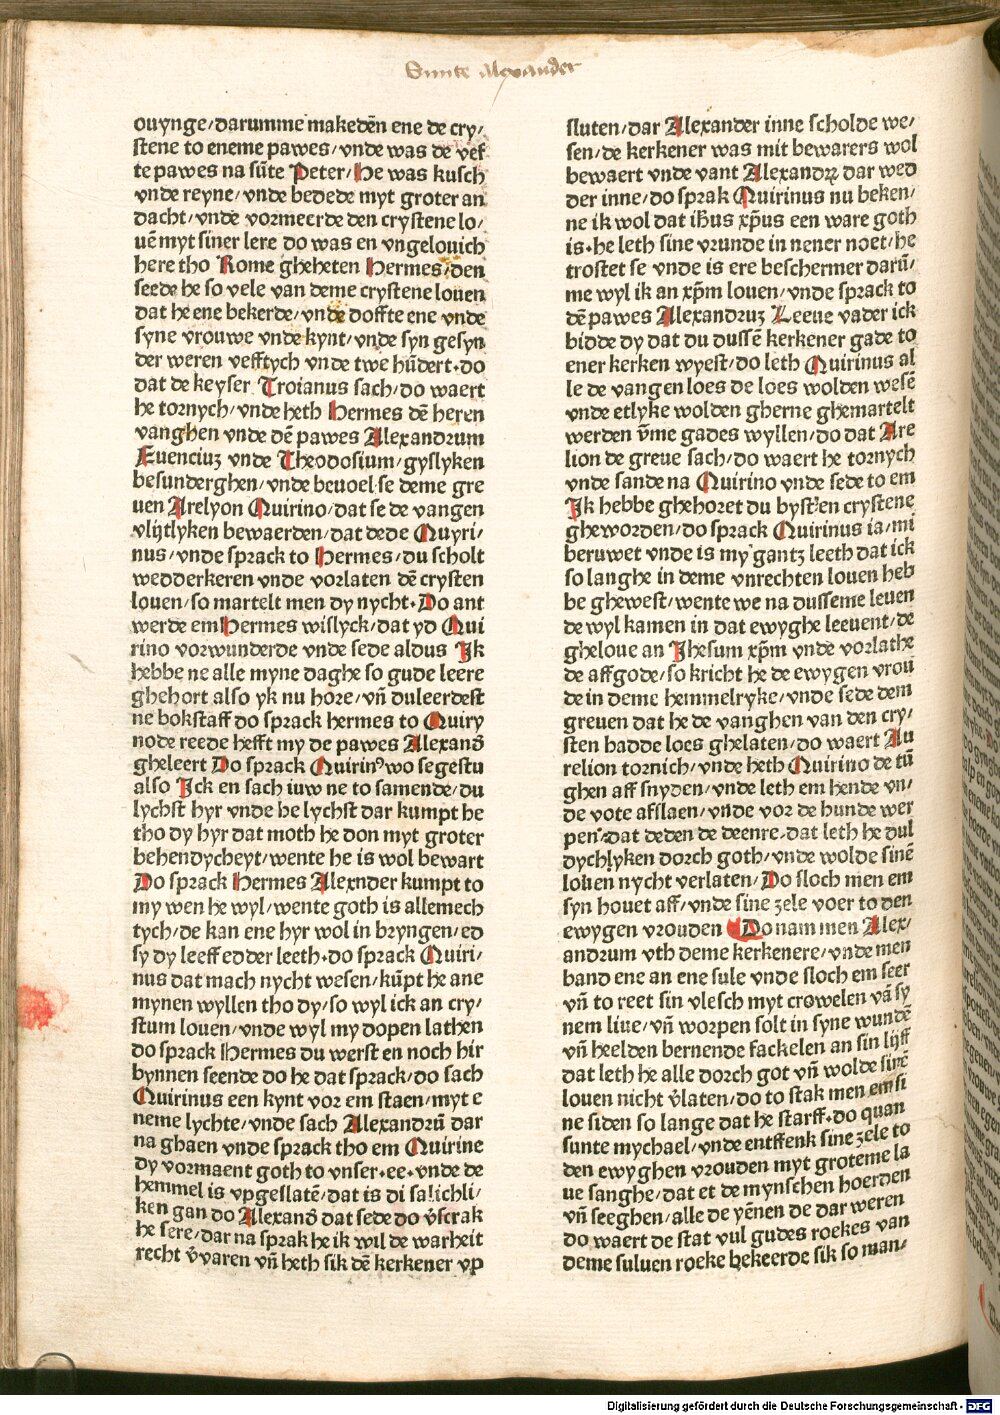 Sunte Alexander
ouynge/darumme makedēn ene de cry/
stene to eneme pawes/vnde was de vef
te pawes na sūte Peter/He was kusch
vnde reyne/vnde bedede myt groter an
dacht/vnde vormeerde den crystene lo/
uē myt siner lere do was en vngelouich
here tho Rome gheheten Hermes/den
seede he so vele van deme crystene louen
dat he ene bekerde/vnde doffte ene vnde
syne vrouwe vnde kynt/vnde syn gesyn
der weren vefftych vnde twe hūdert.do
dat de keyser Troianus sach/do waert
he tornych/vnde heth Hermes dē heren
vanghen vnde dē pawes Alexandrum
Euenciuz vnde Theodosium/gyslyken
besunderghen/vnde beuoel se deme gre
uen Arelyon Quirino/dat se de vangen
vlijtlyken bewaerden/dat dede Quyri/
nus/vnde sprack to Hermes/du scholt
wedderkeren vnde vorlaten dē crysten
louen/so martelt men dy nycht.Do ant
werde em Hermes wislyck/dat yd Qui
rino vorwunderde vnde sede aldus Ik
hebbe ne alle myne daghe so gude leere
ghehort also yk nu hore/vn̄ duleerdest
ne bokstaff do sprack hermes to Quiry
node reede hefft my de pawes Alexand̄
gheleert Do sprack Quirin⁹ wo segestu
also Ick en sach iuw ne to samende/du
lychst hyr vnde he lychst dar kumpt he
tho dy hyr dat moth he don myt groter
behendycheyt/wente he is wol bewart
Do sprack Hermes Alexnder kumpt to
my wen he wyl/wente goth is allemech
tych/de kan ene hyr wol in bryngen/ed
sy dy leeff edder leeth.do sprack Quiri/
nus dat mach nycht wesen/kūpt he ane
mynen wyllen tho dy/so wyl ick an cry/
stum louen/vnde wyl my dopen lathen
do sprack Hermes du werst en noch hir
bynnen seende do he dat sprack/do sach
Quirinus een kynt vor em staen/myt e
neme lychte/vnde sach Alexandrū dar
na ghaen vnde sprack tho em Quirine
dy vormaent goth to vnser.ee.vnde de
hemmel is vpgeslatē/dat is di salichli/
ken gan do Alexand̄ dat sede do v̄scrak
he sere/dar na sprak he ik wil de warheit
recht v̄varen vn̄ heth sik dē kerkener vp
sluten/dar Alexander inne scholde we/
sen/de kerkener was mit bewarers wol
bewaert vnde vant Alexandrꝝ dar wed
der inne/do sprak Quirinus nu beken/
ne ik wol dat ih̄us xp̄us een ware goth
is.he leth sine vrunde in nener noet/he
trostet se vnde is ere beschermer darū/
me wyl ik an xp̄m louen/vnde sprack to
dē pawes Alexandruz Leeue vader ick
bidde dy dat du dussē kerkener gade to
ener kerken wyest/do leth Quirinus al
le de vangen loes de loes wolden wesē
vnde etlyke wolden gherne ghemartelt
werden v̄me gades wyllen/do dat Are
lion de greue sach/do waert he tornych
vnde sande na Quirino vnde sede to em
Ik hebbe ghehoret du byst en crystene
gheworden/do sprack Quirinus ia/mi
beruwet vnde is my gantz leeth dat ick
so langhe in deme vnrechten louen heb
be ghewest/wente we na dusseme leuen
de wyl kamen in dat ewyghe leeuent/de
gheloue an Jhesum xp̄m vnde vorlathe
de affgode/so kricht he de ewygen vrou
de in deme hemmelryke/vnde sede dem
greuen dat he de vanghen van den cry/
sten hadde loes ghelaten/do waert Au
relion tornich/vnde heth Quirino de tū
ghen aff snyden/vnde leth em hende vn/
de vote afslaen/vnde vor de hunde wer
pen.dat deden de deenre.dat leth he dul
dychlyken dorch goth/vnde wolde sinē
louen nycht verlaten/Do sloch men em
syn houet aff/vnde sine zele voer to den
ewygen vrouden Do nam men Alex/
andrum vth deme kerkenere/vnde men
band ene an ene sule vnde sloch em seer
vn̄ to reet sin vlesch myt crowelen vā sy
nem liue/vn̄ worpen solt in syne wundē
vn̄ heelden bernende fackelen an sin lijff
dat leth he alle dorch got vn̄ wolde sinē
louen nicht v̄laten/do to stak men em si
ne siden so lange dat he starff.do quan
sunte mychael/vnde entffenk sine zele to
den ewyghen vrouden myt groteme la
ue sanghe/dat et de mynschen hoerden
vn̄ seeghen/alle de yēnen de dar weren
do waert de stat vul gudes roekes van
deme suluen roeke bekeerde sik so man/
Digitalisierung gefördert durch die Deutsche Forschungsgemeinschaft - DFG